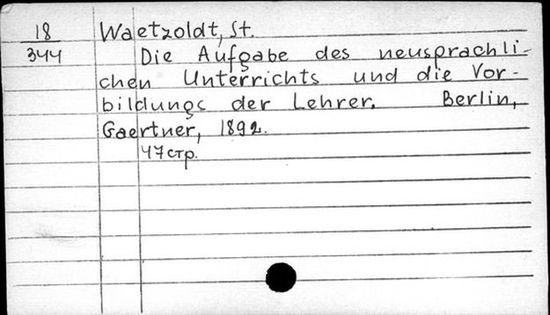 18 Waetzoldt, St.
344 Die Aufgabe des neusprachli-
chen Unterrichts und die Vor-
bildungs der Lehrer. Berlin,
Gaertner, 1892.
47 стр.